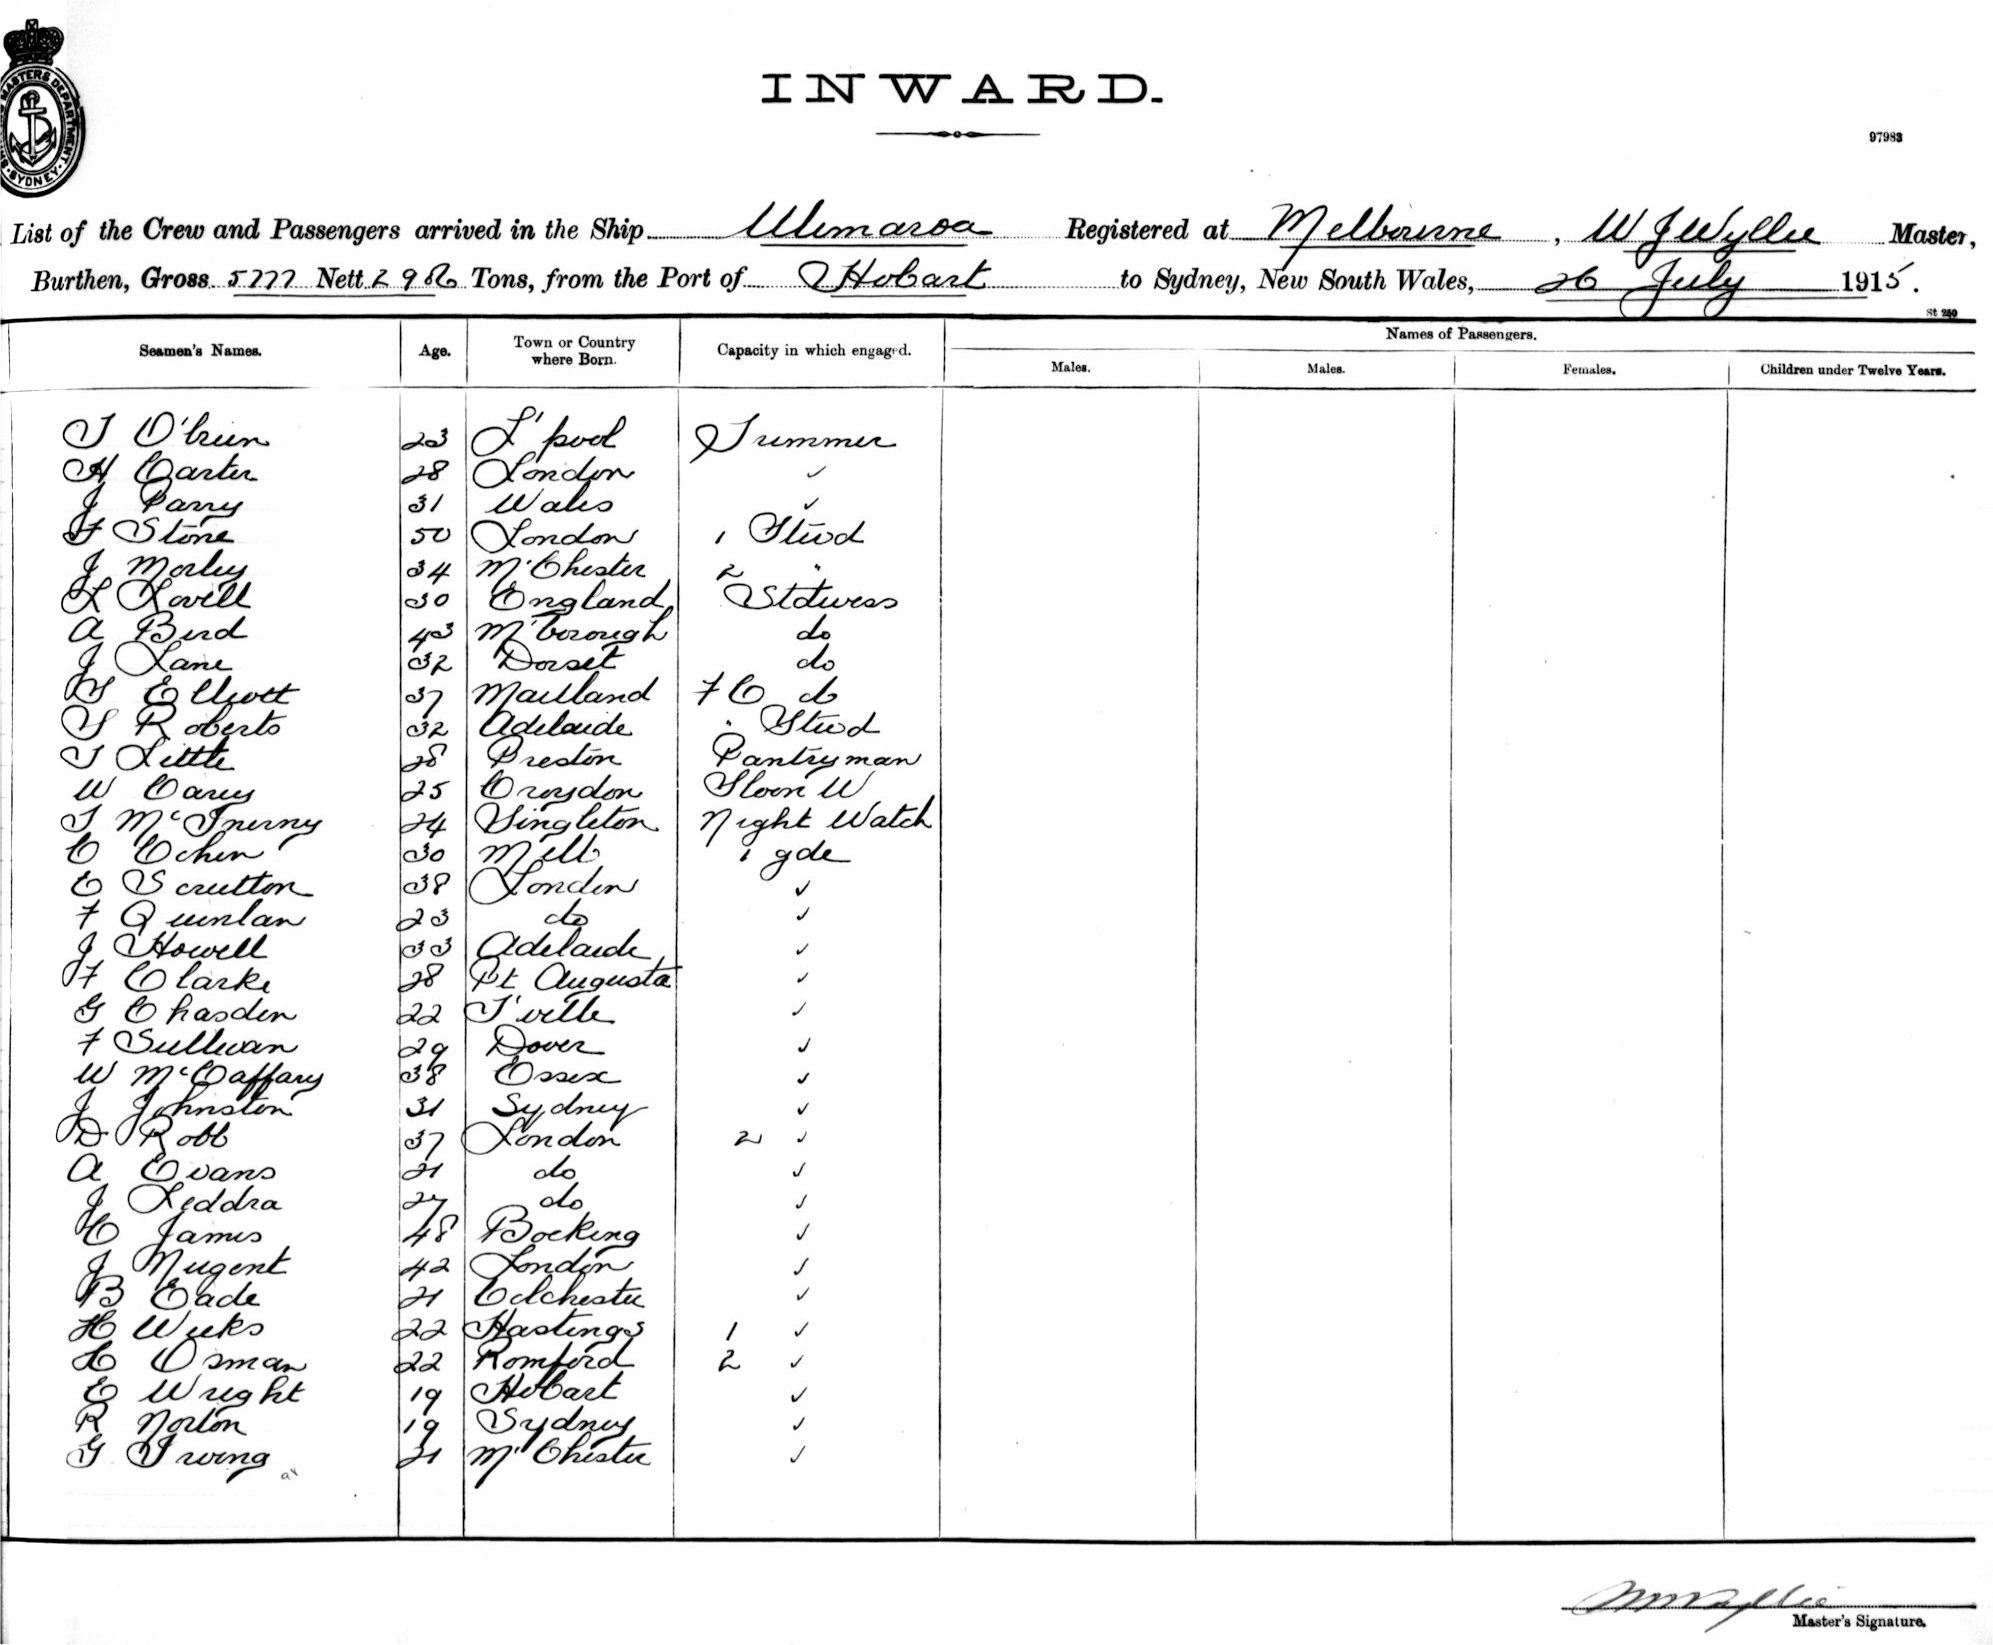 MASTERS DEPARTMENT
SYDNEY
INWARD.
97983
List of the Crew and Passengers arrived in the Ship Ulimaroa Registered at Melbourne, W J Wyllie Master,
Burthen, Gross 5777 Nett 2986 Tons, from the Port of Hobart to Sydney, New South Wales, 26 July 1915.
St 240
Seamen's Names. Age. Town or Country where Born. Capacity in which engaged. Names of Passengers.
Males. Males. Females. Children under Twelve Years.
T O'brien 23 L'pool Trimmer
H Carter 28 London ✓
J Parry 31 Wales ✓
F Stone 50 London 1 Stwd
J Morley 34 M'Chester 2 "
L Lovell 30 England Stdwess
A Bird 43 M'borough do
J Lane 32 Dorset do
S Elliott 37 Maitland F C do
S Roberts 32 Adelaide " Stwd
T Little 28 Preston Pantryman
W Carey 25 Croydon Sloon W
T McInerny 24 Singleton Night Watch
C Cohen 30 Melb 1 gde
E Scrutton 38 London ✓
F Quinlan 23 do ✓
J Howell 33 Adelaide ✓
F Clarke 28 Pt Augusta ✓
G Chasden 22 T'ville ✓
F Sullivan 29 Dover ✓
W McCaffary 38 Essex ✓
J Johnston 31 Sydney ✓
D Robb 37 London 2 ✓
A Evans 21 do ✓
J Leddra 27 do ✓
C James 48 Bocking ✓
J Nugent 42 London ✓
B Eade 21 Colchester ✓
H Weeks 22 Hastings 1 ✓
H Osman 22 Romford 2 ✓
E Wright 19 Hobart ✓
R Norton 19 Sydney ✓
G Irving 21 M'Chester ✓
Wyllie
Master's Signature.